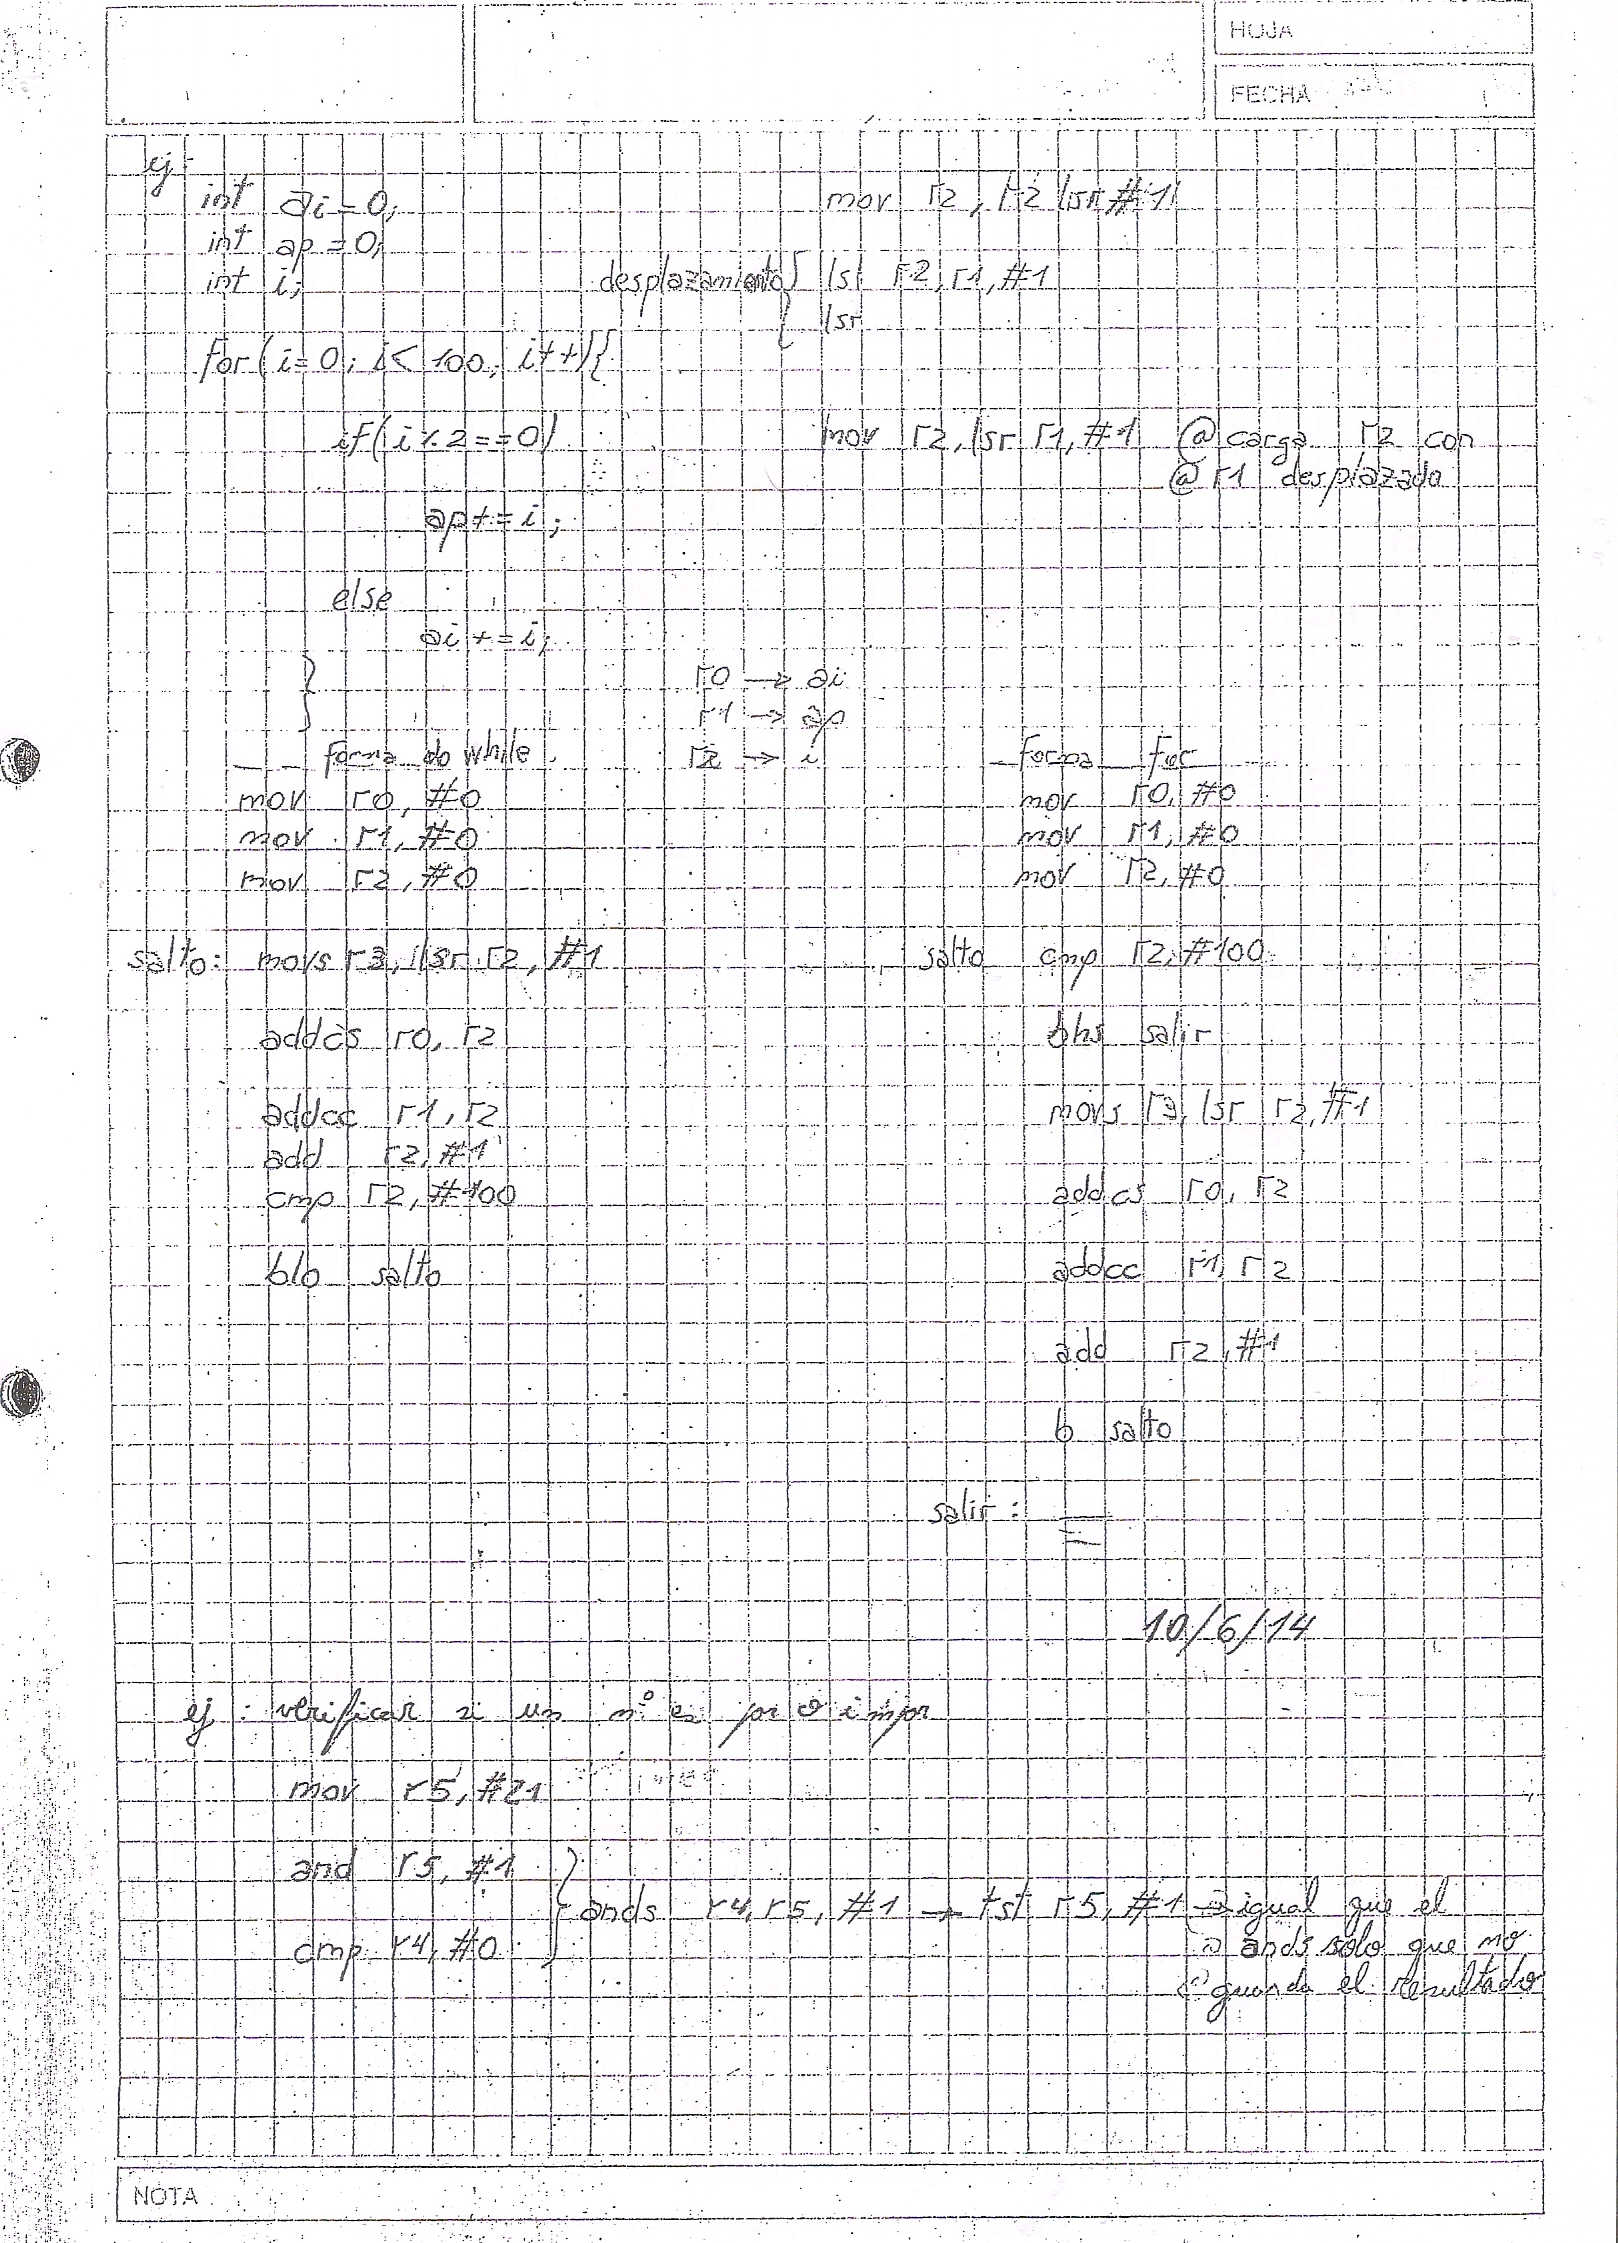 HOJA
FECHA
ej:
int ai=0;
int ap=0;
int i;
for(i=0; i<100; i++){
if(i%2==0)
ap+=i;
else
ai+=i;
}
mov r2, r2 lsr #1
desplazamiento { lsl r2, r1, #1
lsr
mov r2, lsr r1, #1 @ carga r2 con
@ r1 desplazado
r0 → ai
r1 → ap
r2 → i
forma do while
mov r0, #0
mov r1, #0
mov r2, #0
salto: movs r3, lsr r2, #1
addcs r0, r2
addcc r1, r2
add r2, #1
cmp r2, #100
blo salto
forma for
mov r0, #0
mov r1, #0
mov r2, #0
salto cmp r2, #100
bhs salir
movs r3, lsr r2, #1
addcs r0, r2
addcc r1, r2
add r2, #1
b salto
salir:
10/6/14
ej: verificar si un nº es par o impar
mov r5, #21
and r5, #1
cmp r4, #0
} ands r4, r5, #1 → tst r5, #1 → igual que el
ands solo que no
guarda el resultado
NOTA